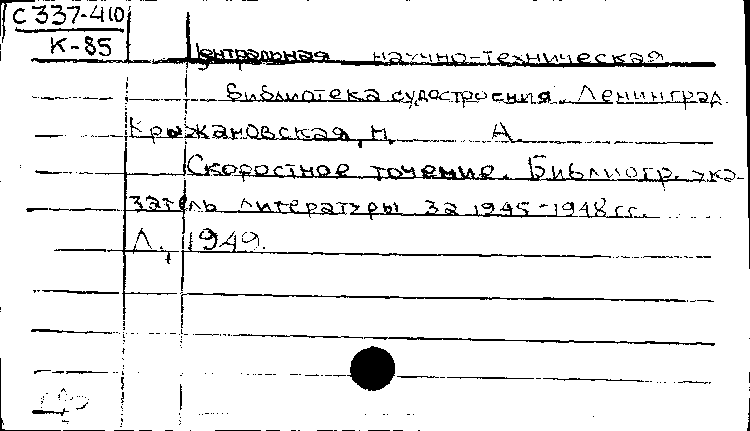 С 337-410
К-85
Центральная научно-техническая
библиотека судостроения. Ленинград.
Крыжановская, Н. А.
Скоростное точение. Библиогр. ука-
затель литературы за 1945-1948 гг.
Л., 1949.